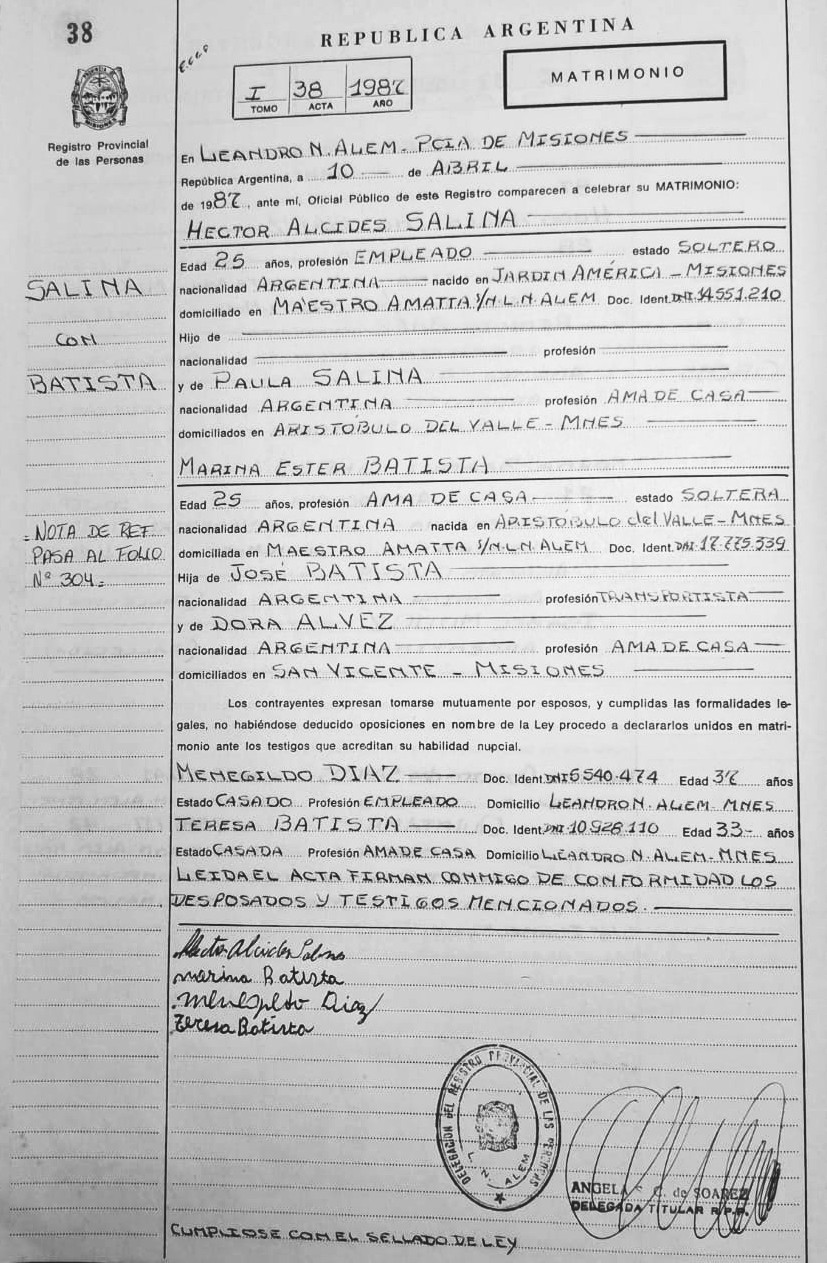 38
REPUBLICA ARGENTINA
I 38 1987
TOMO ACTA AÑO
MATRIMONIO
Registro Provincial
de las Personas
En LEANDRO N. ALEM - PCIA DE MISIONES
República Argentina, a 10 de ABRIL
de 1987, ante mí, Oficial Público de este Registro comparecen a celebrar su MATRIMONIO:
HECTOR ALCIDES SALINA
Edad 25 años, profesión EMPLEADO estado SOLTERO
nacionalidad ARGENTINA nacido en JARDIN AMÉRICA - MISIONES
domiciliado en MAESTRO AMATTA S/N L.N. ALEM Doc. Ident. DNI 14.551.210
Hijo de
nacionalidad profesión
y de PAULA SALINA
nacionalidad ARGENTINA profesión AMA DE CASA
domiciliados en ARISTÓBULO DEL VALLE - MNES
MARINA ESTER BATISTA
Edad 25 años, profesión AMA DE CASA estado SOLTERA
nacionalidad ARGENTINA nacida en ARISTÓBULO del VALLE - MNES
domiciliada en MAESTRO AMATTA S/N L.N. ALEM Doc. Ident. DNI 17.775.339
Hija de JOSÉ BATISTA
nacionalidad ARGENTINA profesión TRANSPORTISTA
y de DORA ALVEZ
nacionalidad ARGENTINA profesión AMA DE CASA
domiciliados en SAN VICENTE - MISIONES
Los contrayentes expresan tomarse mutuamente por esposos, y cumplidas las formalidades le-
gales, no habiéndose deducido oposiciones en nombre de la Ley procedo a declararlos unidos en matri-
monio ante los testigos que acreditan su habilidad nupcial.
MENEGILDO DIAZ Doc. Ident. DNI 6540.474 Edad 37 años
Estado CASADO Profesión EMPLEADO Domicilio LEANDRO N. ALEM - MNES
TERESA BATISTA Doc. Ident. DNI 10.928.110 Edad 33- años
Estado CASADA Profesión AMA DE CASA Domicilio LEANDRO N. ALEM - MNES
LEIDA EL ACTA FIRMAN CONMIGO DE CONFORMIDAD LOS
DESPOSADOS Y TESTIGOS MENCIONADOS.
SALINA
CON
BATISTA
- NOTA DE REF.
PASA AL FOLIO
Nº 304 -
Hector Alcides Salina
marina Batista
menegildo Diaz
Teresa Batista
DELEGACION DEL REGISTRO PROVINCIAL DE LAS PERSONAS
L. N. ALEM
ANGELA C. de SOAREZ
DELEGADA TITULAR R.P.P.
CUMPLIOSE CON EL SELLADO DE LEY